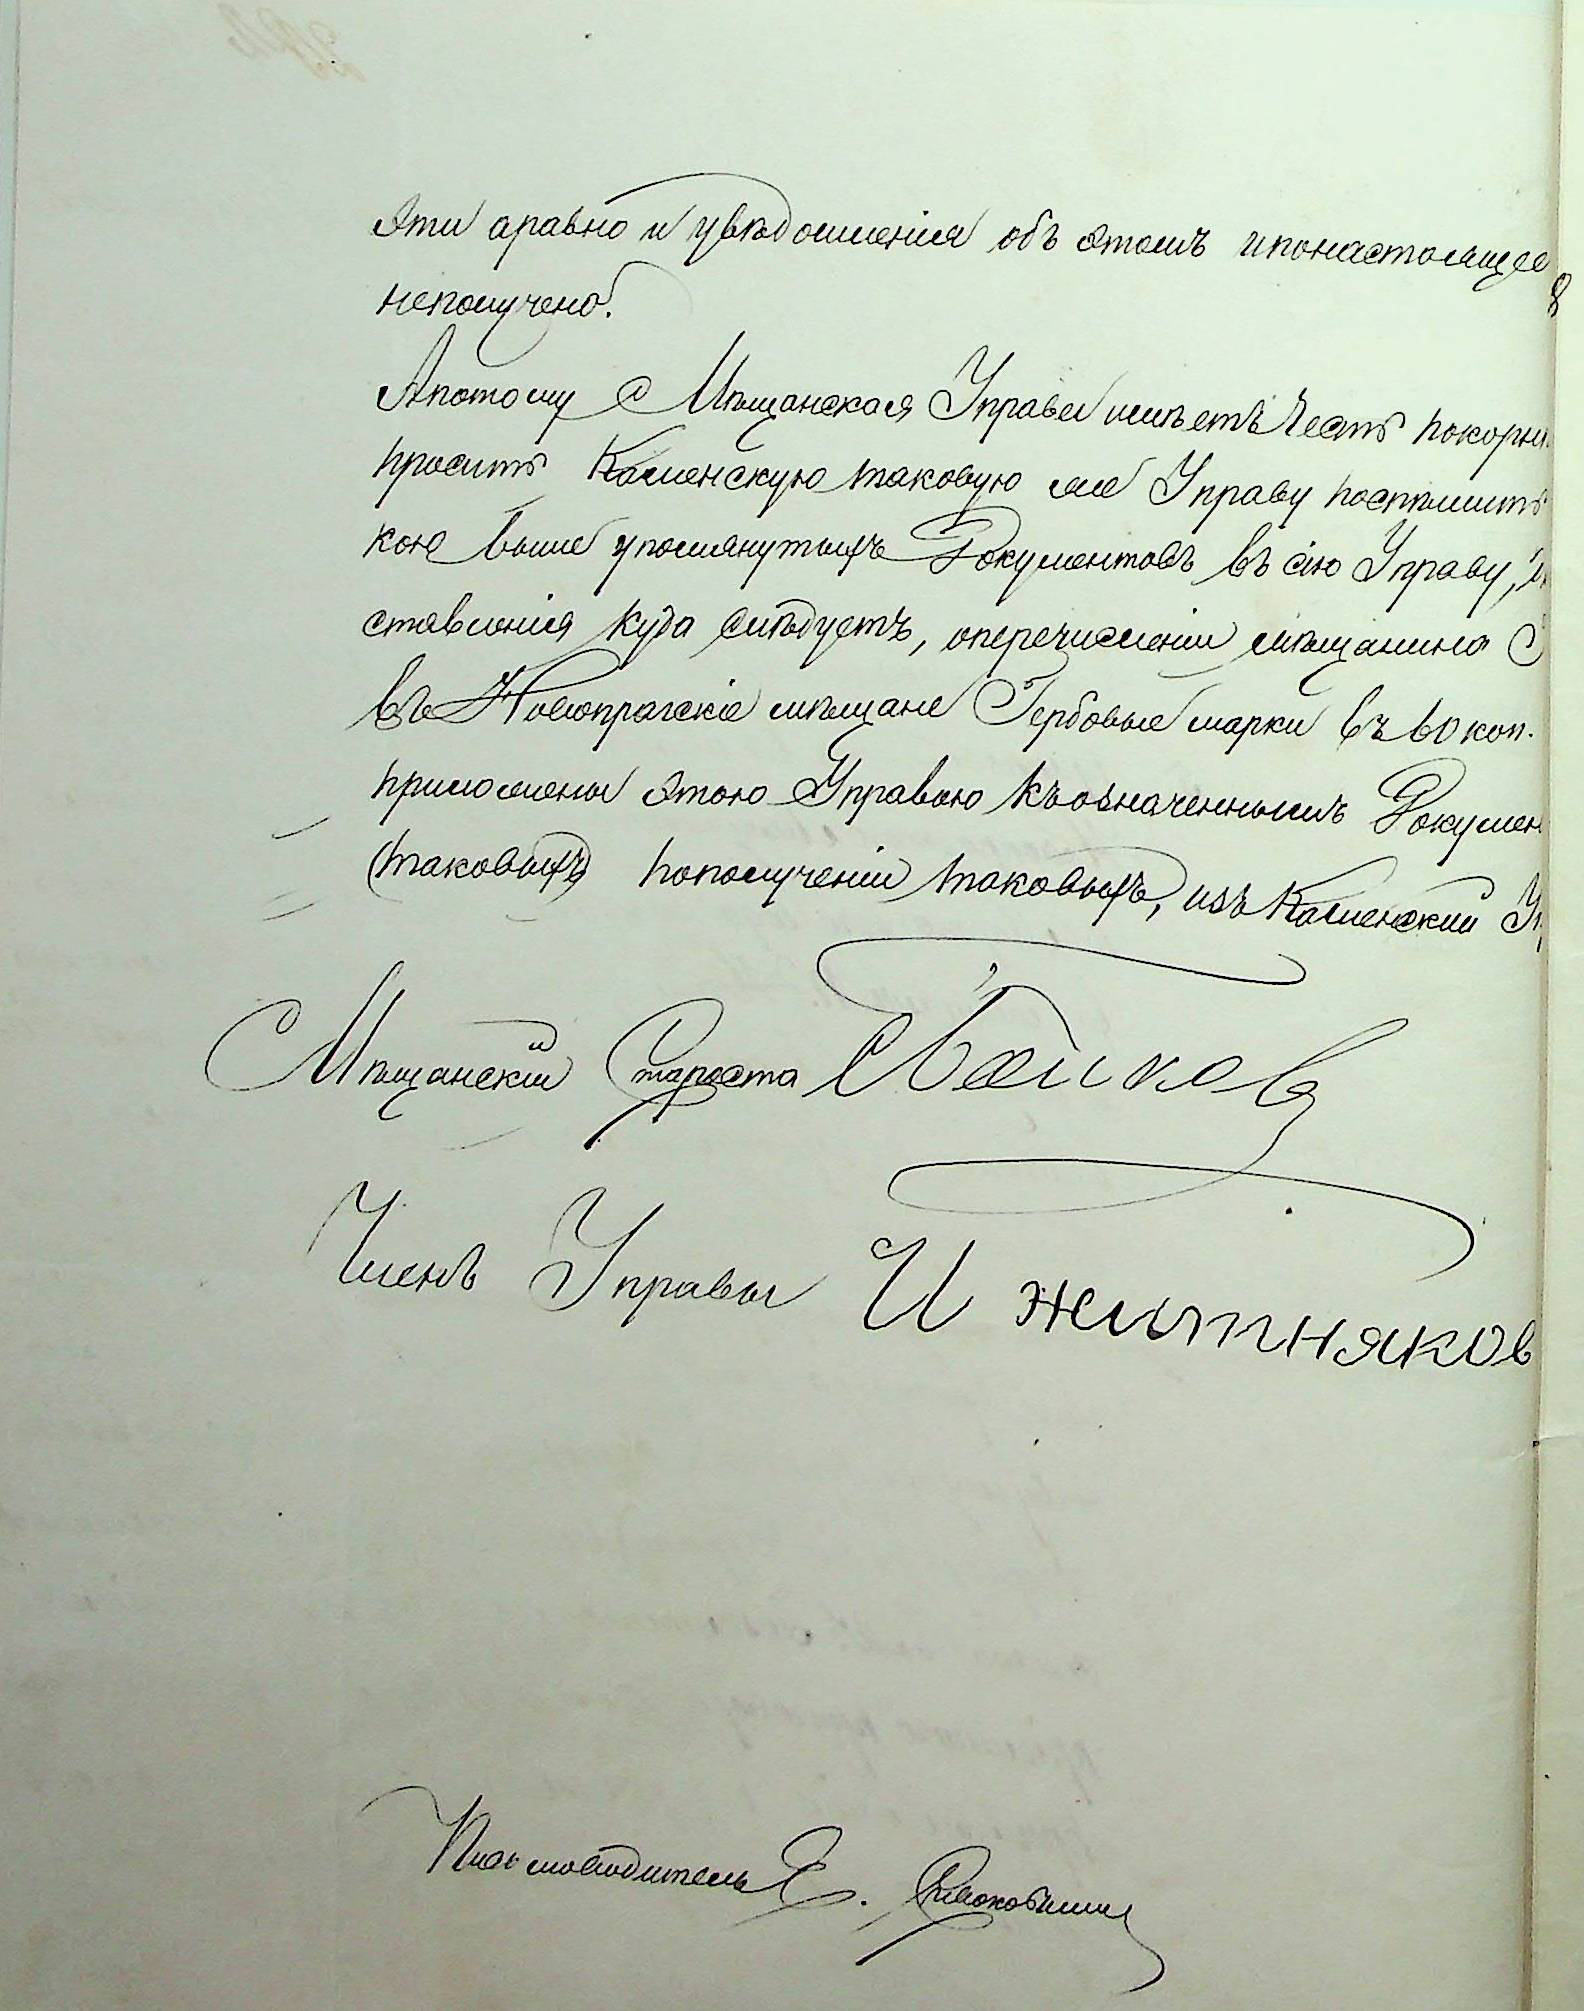 эти аравно и увѣдомленія объ этомъ ипонастоящее
неполучено.
Апотому Мѣщанская Управа имѣетъ честь покорнѣ
просить Каменскую таковую же Управу поспѣшить
кою выше упомянутыхъ Документовъ въ сію Управу,
ставленія куда слѣдуетъ, оперечисленіи мѣщанина
въ Новопрагскіе мѣщане Гербовые марки въ 60 коп.
приложены этою Управою къозначеннымъ Докумен
(таковыхъ) пополученіи таковыхъ, изъ Каменский Уп
Мѣщанскій Староста Бойков
Членъ Управы И житняков
Письмоводитель Е.